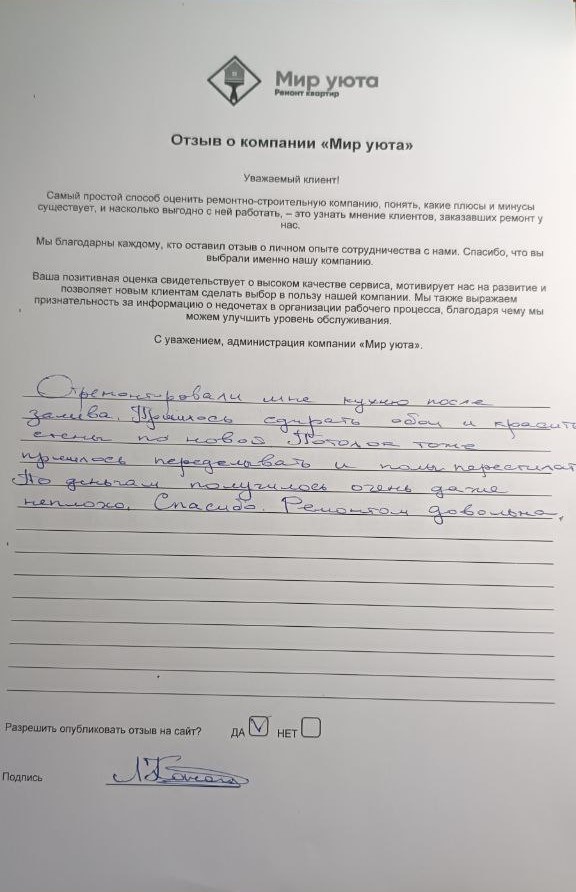 Мир уюта
Ремонт квартир
Отзыв о компании «Мир уюта»
Уважаемый клиент!
Самый простой способ оценить ремонтно-строительную компанию, понять, какие плюсы и минусы
существует, и насколько выгодно с ней работать, – это узнать мнение клиентов, заказавших ремонт у
нас.
Мы благодарны каждому, кто оставил отзыв о личном опыте сотрудничества с нами. Спасибо, что вы
выбрали именно нашу компанию.
Ваша позитивная оценка свидетельствует о высоком качестве сервиса, мотивирует нас на развитие и
позволяет новым клиентам сделать выбор в пользу нашей компании. Мы также выражаем
признательность за информацию о недочетах в организации рабочего процесса, благодаря чему мы
можем улучшить уровень обслуживания.
С уважением, администрация компании «Мир уюта».
Отремонтировали мне кухню после
залива. Пришлось сдирать обои и красить
стены по новой Потолок тоже
пришлось переделывать и полы перестилат
По деньгам получилось очень даже
неплохо. Спасибо. Ремонтом довольна.
Разрешить опубликовать отзыв на сайт? ДА НЕТ
Подпись